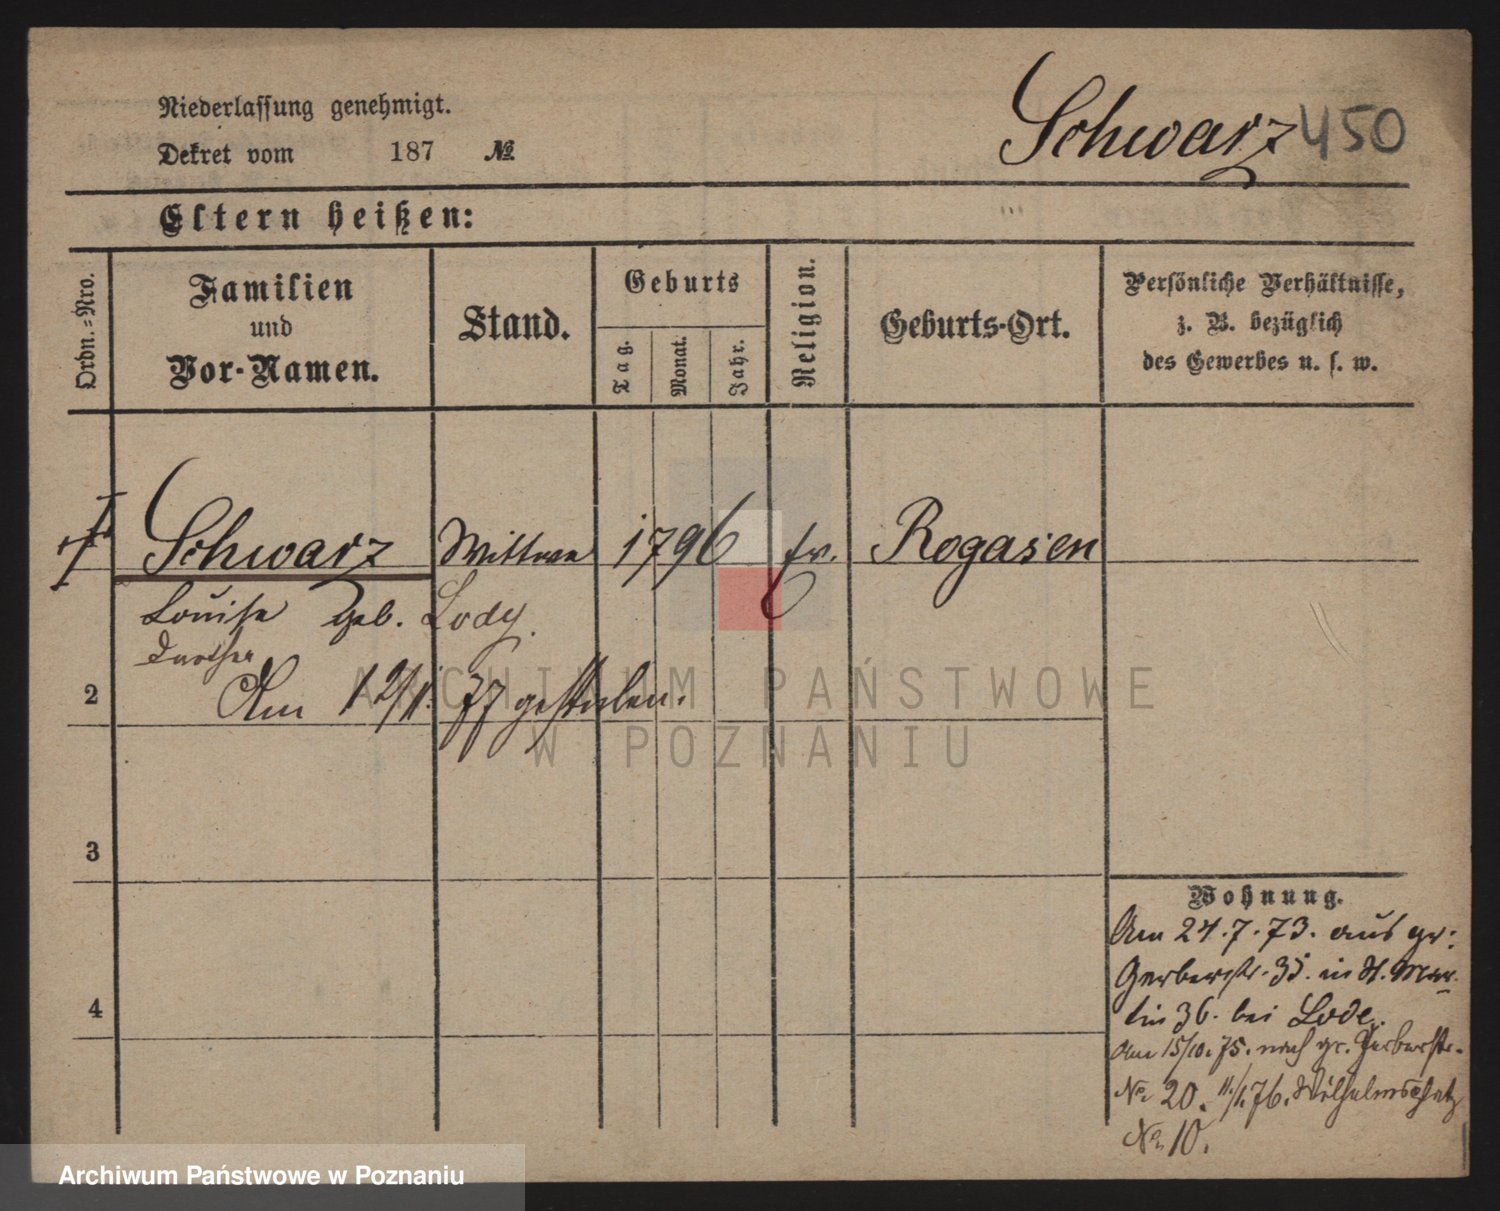 Niederlassung genehmigt.
Dekret vom 187 №
Schwarz 450
Eltern heißen:
Ordn.-Nro.
Familien
und
Vor-Namen.
Stand.
Geburts
Tag.
Monat.
Jahr.
Religion.
Geburts-Ort.
Persönliche Verhältnisse,
z. B. bezüglich
des Gewerbes u. s. w.
Schwarz Wittwe 1796 ev. Rogasen
Louise geb. Lody.
Am 12/1. 77 gestorben.
2
3
4
Wohnung.
Am 24.7.73. aus gr.
Gerberstr. 35. in St. Mar
tin 36. bei Lode.
Am 15/10. 75. nach gr. Gerberstr.
No. 20. 11/1. 76. Wilhelmsplatz
No. 10.
ARCHIWUM PAŃSTWOWE
W POZNANIU
Archiwum Państwowe w Poznaniu